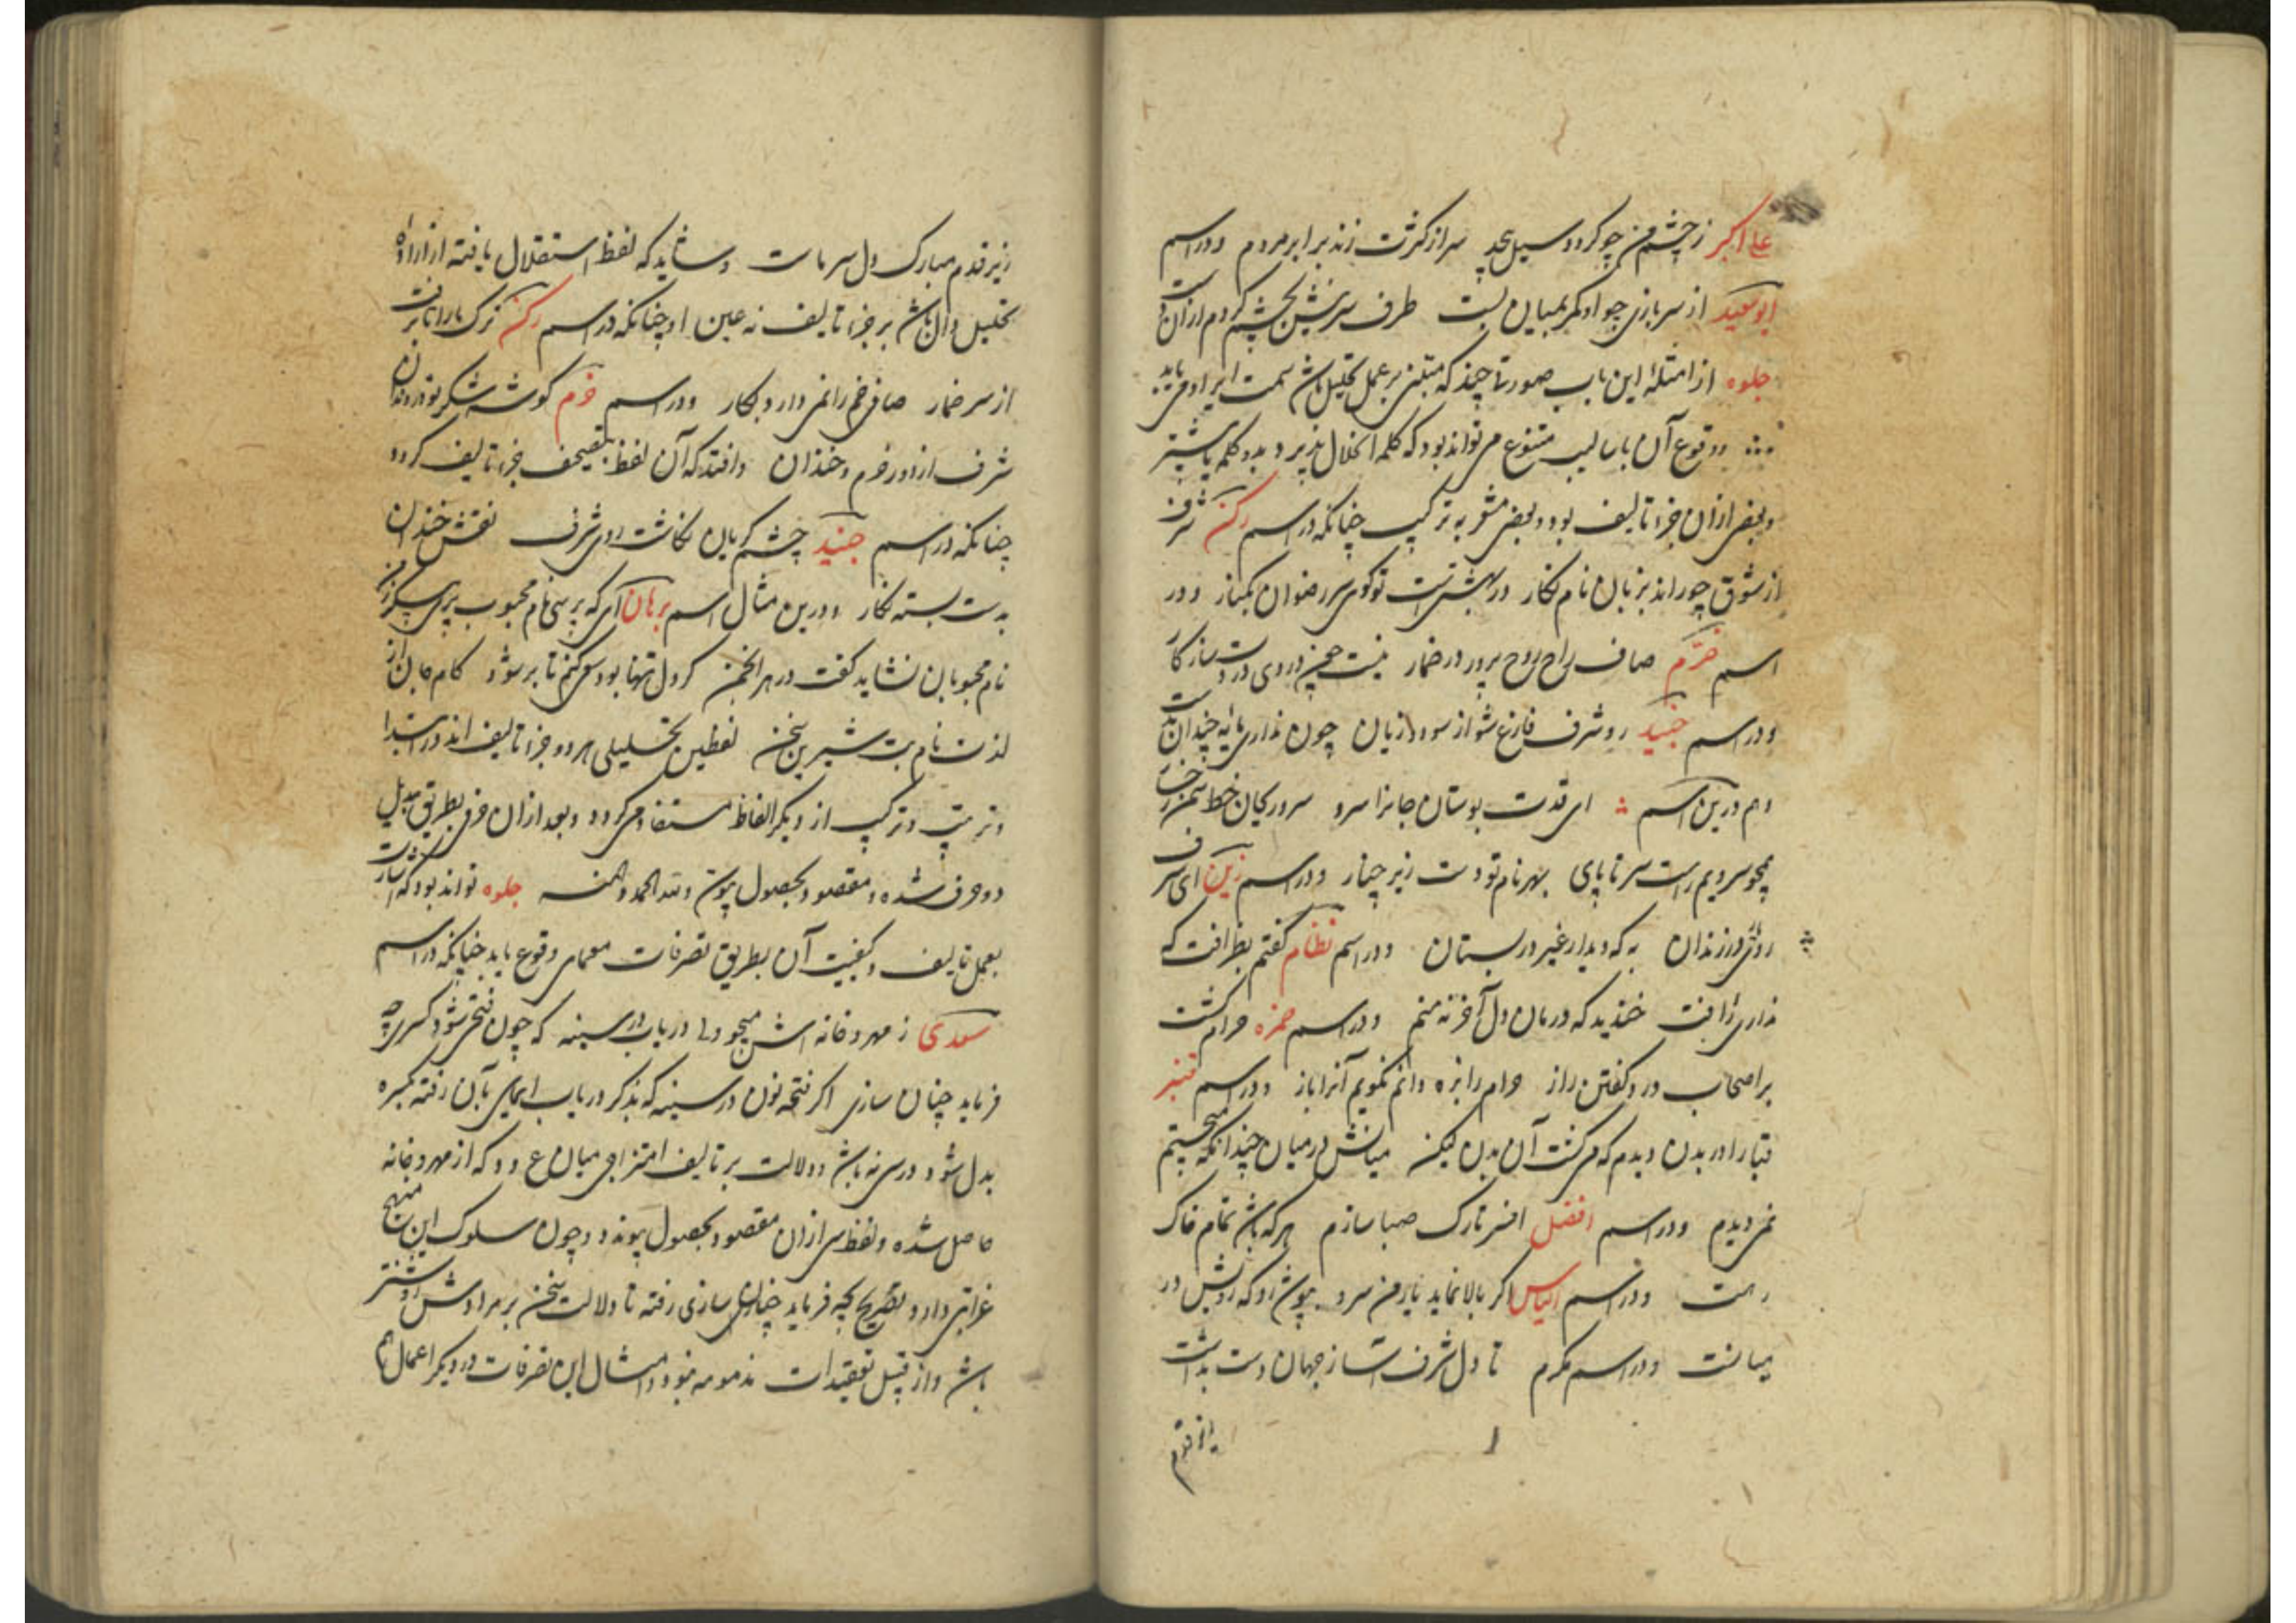 علی اکبر ز چشم من چو کردد سیل بیحد سر از کثرت زند برابر مردم و در اسم
ابوسعید از سر بازی چو او کمر بمیان بست طرف سر بچشم کردم از آن
جلوه از امثلهٔ این باب صورتا چند که مبتنی بر عمل تحلیل باشد سمت ایراد می یابد
و وقوع آن باسالیب متنوع می تواند بود که کلمه انحلال پذیرد بدو کلمه یا بیشتر
و بعضی از آن جزء تالیف بود و بعضی مشعر به ترکیب چنانکه در اسم رکن شرف
از شوق چو راند بزبان نام نکار در بهشتست تو کوی سر رضوان بکنار و در
اسم خرم صاف راح روح پرور در خمار نیست دردی درد ساز کار
و در اسم جنید رو شرف فارغ شو از سود و زیان چون نداری مایه چندان
و هم درین اسم ای قدت بوستان جانرا سرو سرو ریحان خط سمن
همچو سرویم راست سر تا پای بهر نام تو دست زیر چنار و در اسم زین ای شرف
روی در زندان به که دیدار غیر در بستان و در اسم نظام کفتم بظرافت که
نداری خندید که درمان دل آخر نه منم و در اسم حمزه حرام کشت
بر اصحاب درد کفتن راز حرام را بزه دانم نکویم آنرا باز و در اسم قنبر
قبا را در بدن دیدم که می کشت آن بدن لیکن میانش در میان چندانکه میجستم
نمی دیدم و در اسم افضل افسر تارک صبا سازم هر که باشد تمام خاک
رهت و در اسم الیاس اکر بالا نماید یار من سرو بپوش او که رویش در
میانست و در اسم مکرم تا دل شرف از جهان دست بداشت
زیر قدم مبارک دل سر ماست و شاید که لفظ استقلال یافته از اراده
تحلیل دال باشد بر جزء تالیف نه عین او چنانکه در اسم رکن ترک
از سر خمار صافی خم را نمی دارد بکار و در اسم خرم کوشه شکر تو
شرف از دور خرم و خندان و افتد که آن لفظ بتصحیف جزء تالیف کردد
چنانکه در اسم جنید چشم کریان نکاشت روی شرف نقش خندان
بدست بسته نکار و درین مثال اسم برهان ای که پرسی نام محبوب پری پیکر ز من
نام محبوبان نشاید کفت در هر انجمن کر دل تنها بود سعی کنم تا بر شود کام جان از
لذت نام بت شیرین سخن لفظین تحلیلی هر دو جزء تالیف اند در ابتدا
و ترتیب و ترکیب از دیکر الفاظ مستفاد می کردد و بعد از آن حرفی بطریق تبدیل
دو حرف شده و مقصود بحصول پیوست و لله الحمد و المنه جلوه تواند بود که اشارت
بعمل تالیف و کیفیت آن بطریق تصرفات معمای وقوع یابد چنانکه در اسم
سعدی ز مهر و خانه اش میجو دلا در باب در سینه که چون فتحی شود کسری چه
فرماید چنان سازی اکر فتحه نون در سینه که بذکر دریاب ایمای بآن رفته بکسره
بدل شود در سی نه باشد و دلالت بر تالیف امتزاجی میان ع و د که از مهر و خانه
حاصل شده و لفظ سی از آن مقصود بحصول پیوندد و چون سلوک این منهج
غرابتی دارد تصریح بچه فرماید چنان سازی رفته تا دلالت سخن بر مراد روشنتر
باشد و از قبیل تعقیدات مذمومه نبود و امثال این تصرفات در دیکر اعمال هم